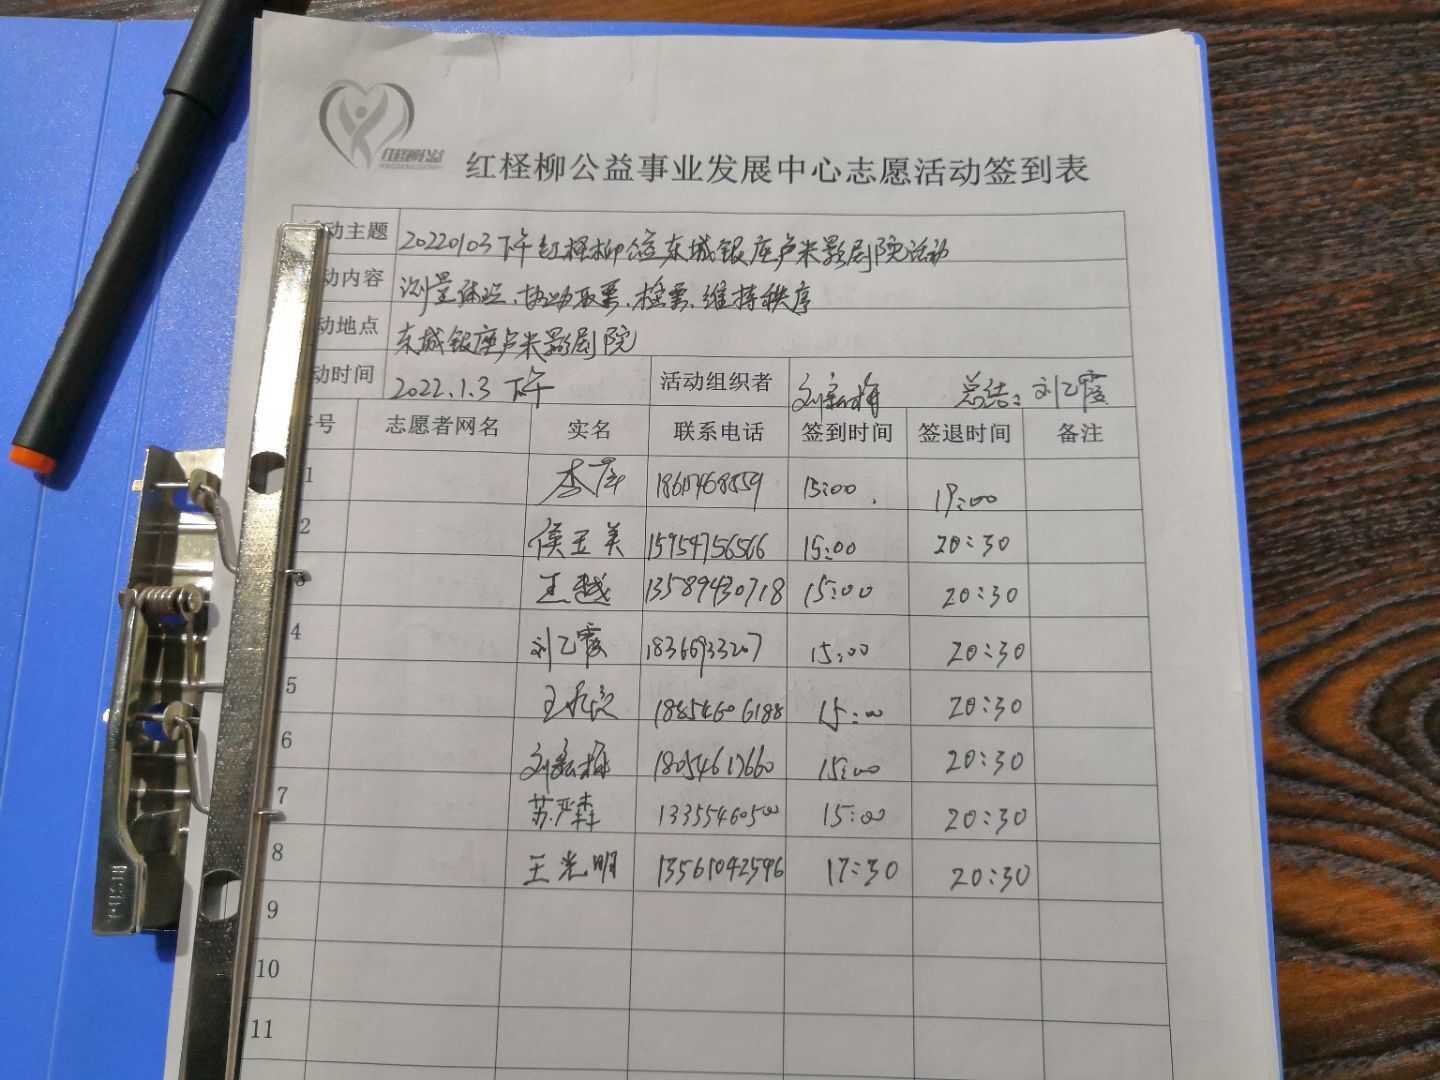 红柽柳公益
红柽柳公益事业发展中心志愿活动签到表
动主题 20220103下午红柽柳走东城银座卢米影剧院活动
动内容 测量体温、协助取票、检票、维持秩序
动地点 东城银座卢米影剧院
动时间 2022.1.3 下午 活动组织者 刘 梅 总结：刘乙霞
序号 志愿者网名 实名 联系电话 签到时间 签退时间 备注
1 李 15:00 19:00
2 侯玉美 15954756566 15:00 20:30
3 王越 13589430718 15:00 20:30
4 刘乙霞 15:00 20:30
5 王 18854606188 15:00 20:30
6 刘 梅 18054617660 15:00 20:30
7 苏严森 13355460500 15:00 20:30
8 王光明 13561042596 17:30 20:30
9
10
11